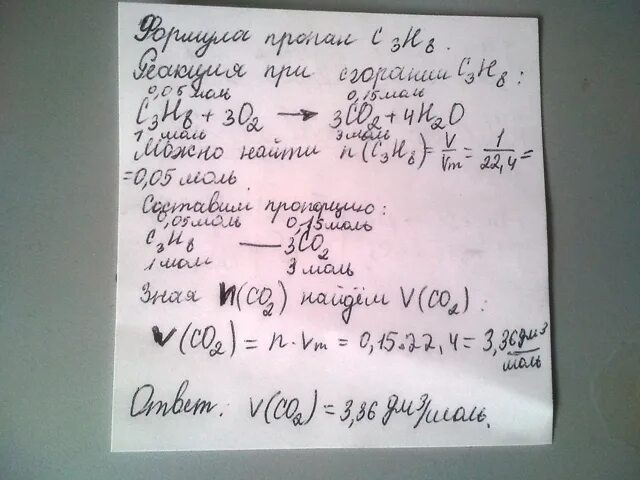 Формула пропан C₃H₈.
Реакция при сгорании C₃H₈:
0,05 моль 0,15 моль
C₃H₈ + 3O₂ → 3CO₂ + 4H₂O
1 моль 3 моль
Можно найти n(C₃H₈) = V/Vm = 1/22,4 =
= 0,05 моль
Составим пропорцию:
0,05 моль 0,15 моль
C₃H₈ — 3CO₂
1 моль 3 моль
Зная n(CO₂) найдём V(CO₂):
V(CO₂) = n · Vm = 0,15 · 22,4 = 3,36 дм³/моль
Ответ: V(CO₂) = 3,36 дм³/моль.